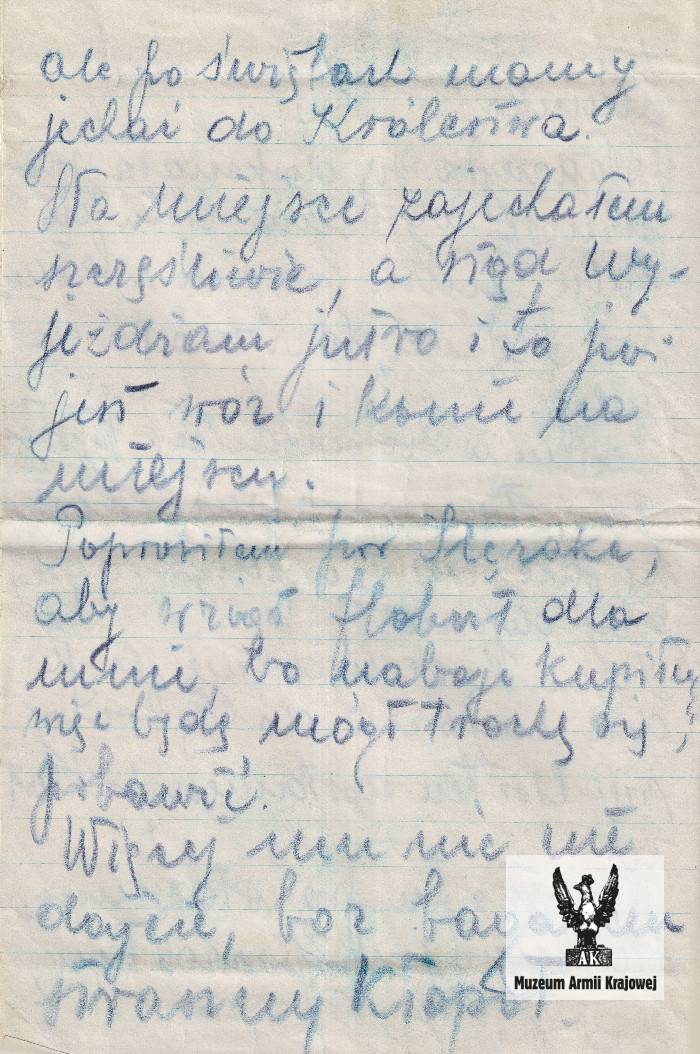 ale po świętach mamy
jechać do Królestwa.
Na miejsce zajechałem
szczęśliwie, a stąd wy-
jeżdżam jutro i to
jest wóz i konie na
miejscu.
Poprosiłem por
aby wziął flobert dla
mnie, bo naboje kupiły
więc będę mógł trochę się
pobawić.
Więcej mu nic nie
dajcie, bo z
straszny kłopot.
AK
Muzeum Armii Krajowej